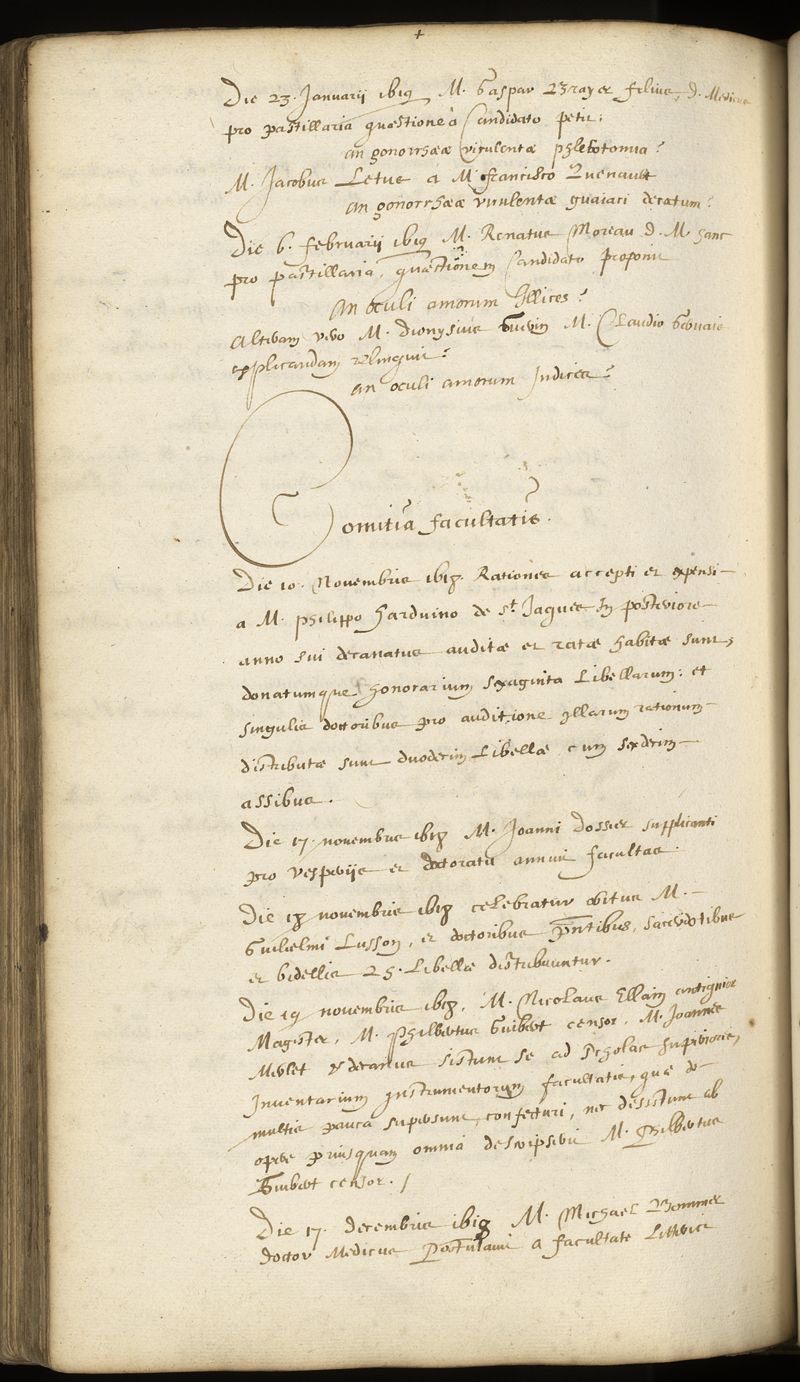 +
Die 23. Januarij 1619 M. Gaspar Brayer filius, d. Medicus
pro pastillaria quæstione à Candidato petit:
an gonorrhææ virulentæ phlebotomia?
M. Jacobus Letus a M. francisco Quenault
an gonorrhææ virulentæ guaiaci decoctum?
Die 6. februarij 1619 M. Renatus Moreau d. M. hanc
pro pastillaria, quæstionem Candidato proponit
An oculi amorum Illices?
Alteram vero M. dionysius Guerin M. Claudio
explicandam relinquit:
an oculi amorum Indices?
Comitia facultatis.
Die 10. Novembris 1618. Rationes accepti et expensi
a M. philippo harduino de St. Jaques In posteriore
anno sui decanatus auditæ et ratæ habitæ sunt,
donatumque honorarium sexaginta Libellarum: et
singulis doctoribus pro auditione illarum rationum
distributæ sunt duodecim Libellæ cum sexdecim
assibus.
Die 17. novembris 1618 M. Joanni Dossier supplicanti
pro vesperijs et doctoratu annuit facultas.
Die 18 novembris 1618 celebratur obitus M.
Guilielmi Lusson, et doctoribus pñtibus, sacerdotibus
et bidellis 25. Libellæ distribuuntur.
Die 19 novembris 1618. M. Nicolaus Ellain antiquior
Magister, M. Philbertus Guibert censor, M. Joannes
Merlet & decanus sistunt se ad Scholas superiores,
Inventarium Instrumentorum facultatis, quæ de
multis pauca supersunt, confecturi, nec desistunt ab
opere priusquam omnia descripserit M. Philbertus
Guibert censor.
Die 17. decembris 1618 M. Michael
doctor Medicus Postulavit a facultate